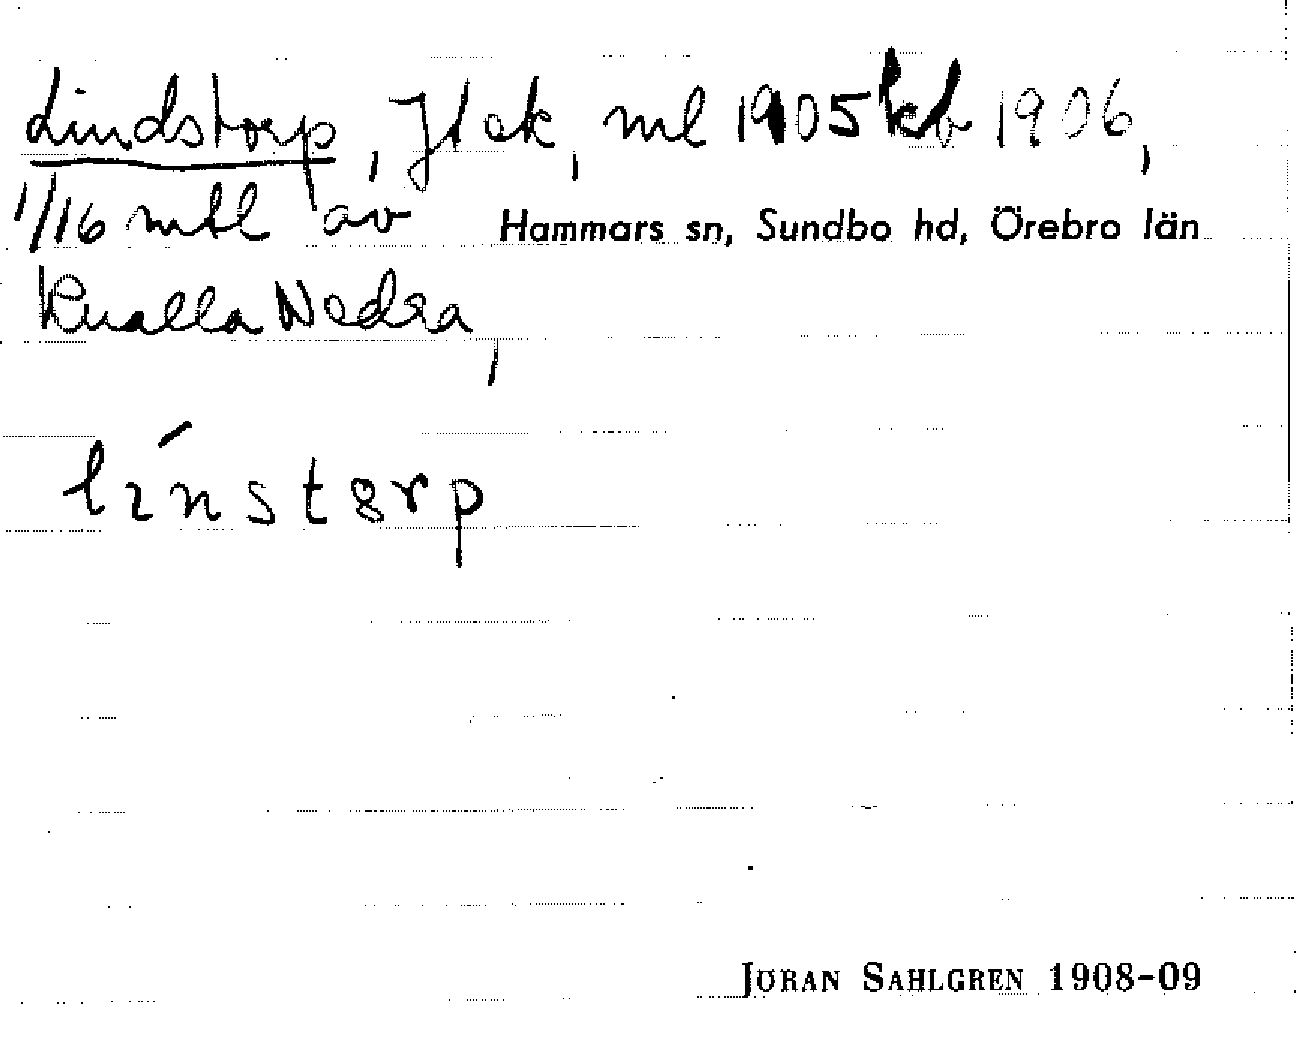 Lindstorp, Jlek, ml 1905 kb 1906,
1/16 mtl av Hammars sn, Sundbo hd, Örebro län
Kualla Nedra,
lı́nstɞrp
JÖRAN SAHLGREN 1908-09